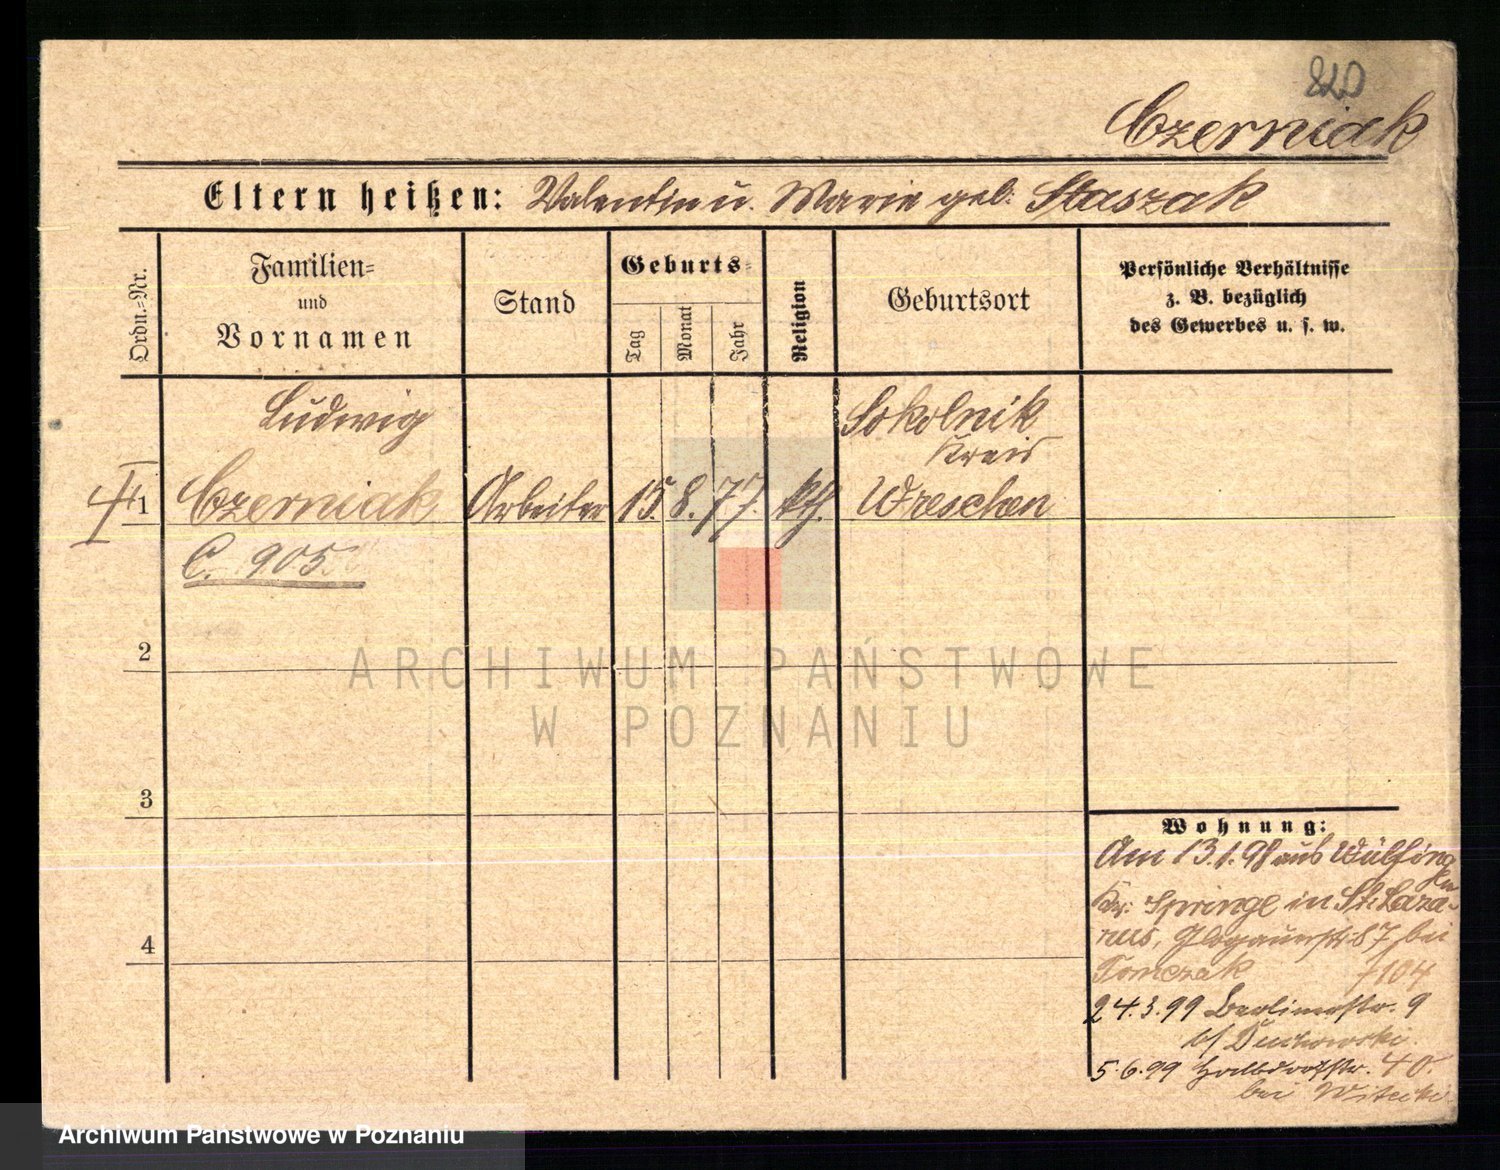 820
Czerniak
Eltern heißen: Valentin u. Marie geb. Staszak
Ordn.-Nr.
Familien-
und
Vornamen
Stand
Geburts-
Tag
Monat
Jahr
Religion
Geburtsort
Persönliche Verhältnisse
z. B. bezüglich
des Gewerbes u. s. w.
Ludwig
Sokolnik
Kreis
1 Czerniak Arbeiter 15. 8. 77. kth. Wreschen
C. 905.
2
3
4
Wohnung:
Am 13.1.98 aus Wülfingen
Kr. Springe in St. Laza-
rus, Glogauerstr. 87 bei
Tomczak 7104
24.3.99 Berlinerstr. 9
5.6.99 Halbdorfstr. 40.
bei Witecki
ARCHIWUM PAŃSTWOWE
W POZNANIU
Archiwum Państwowe w Poznaniu